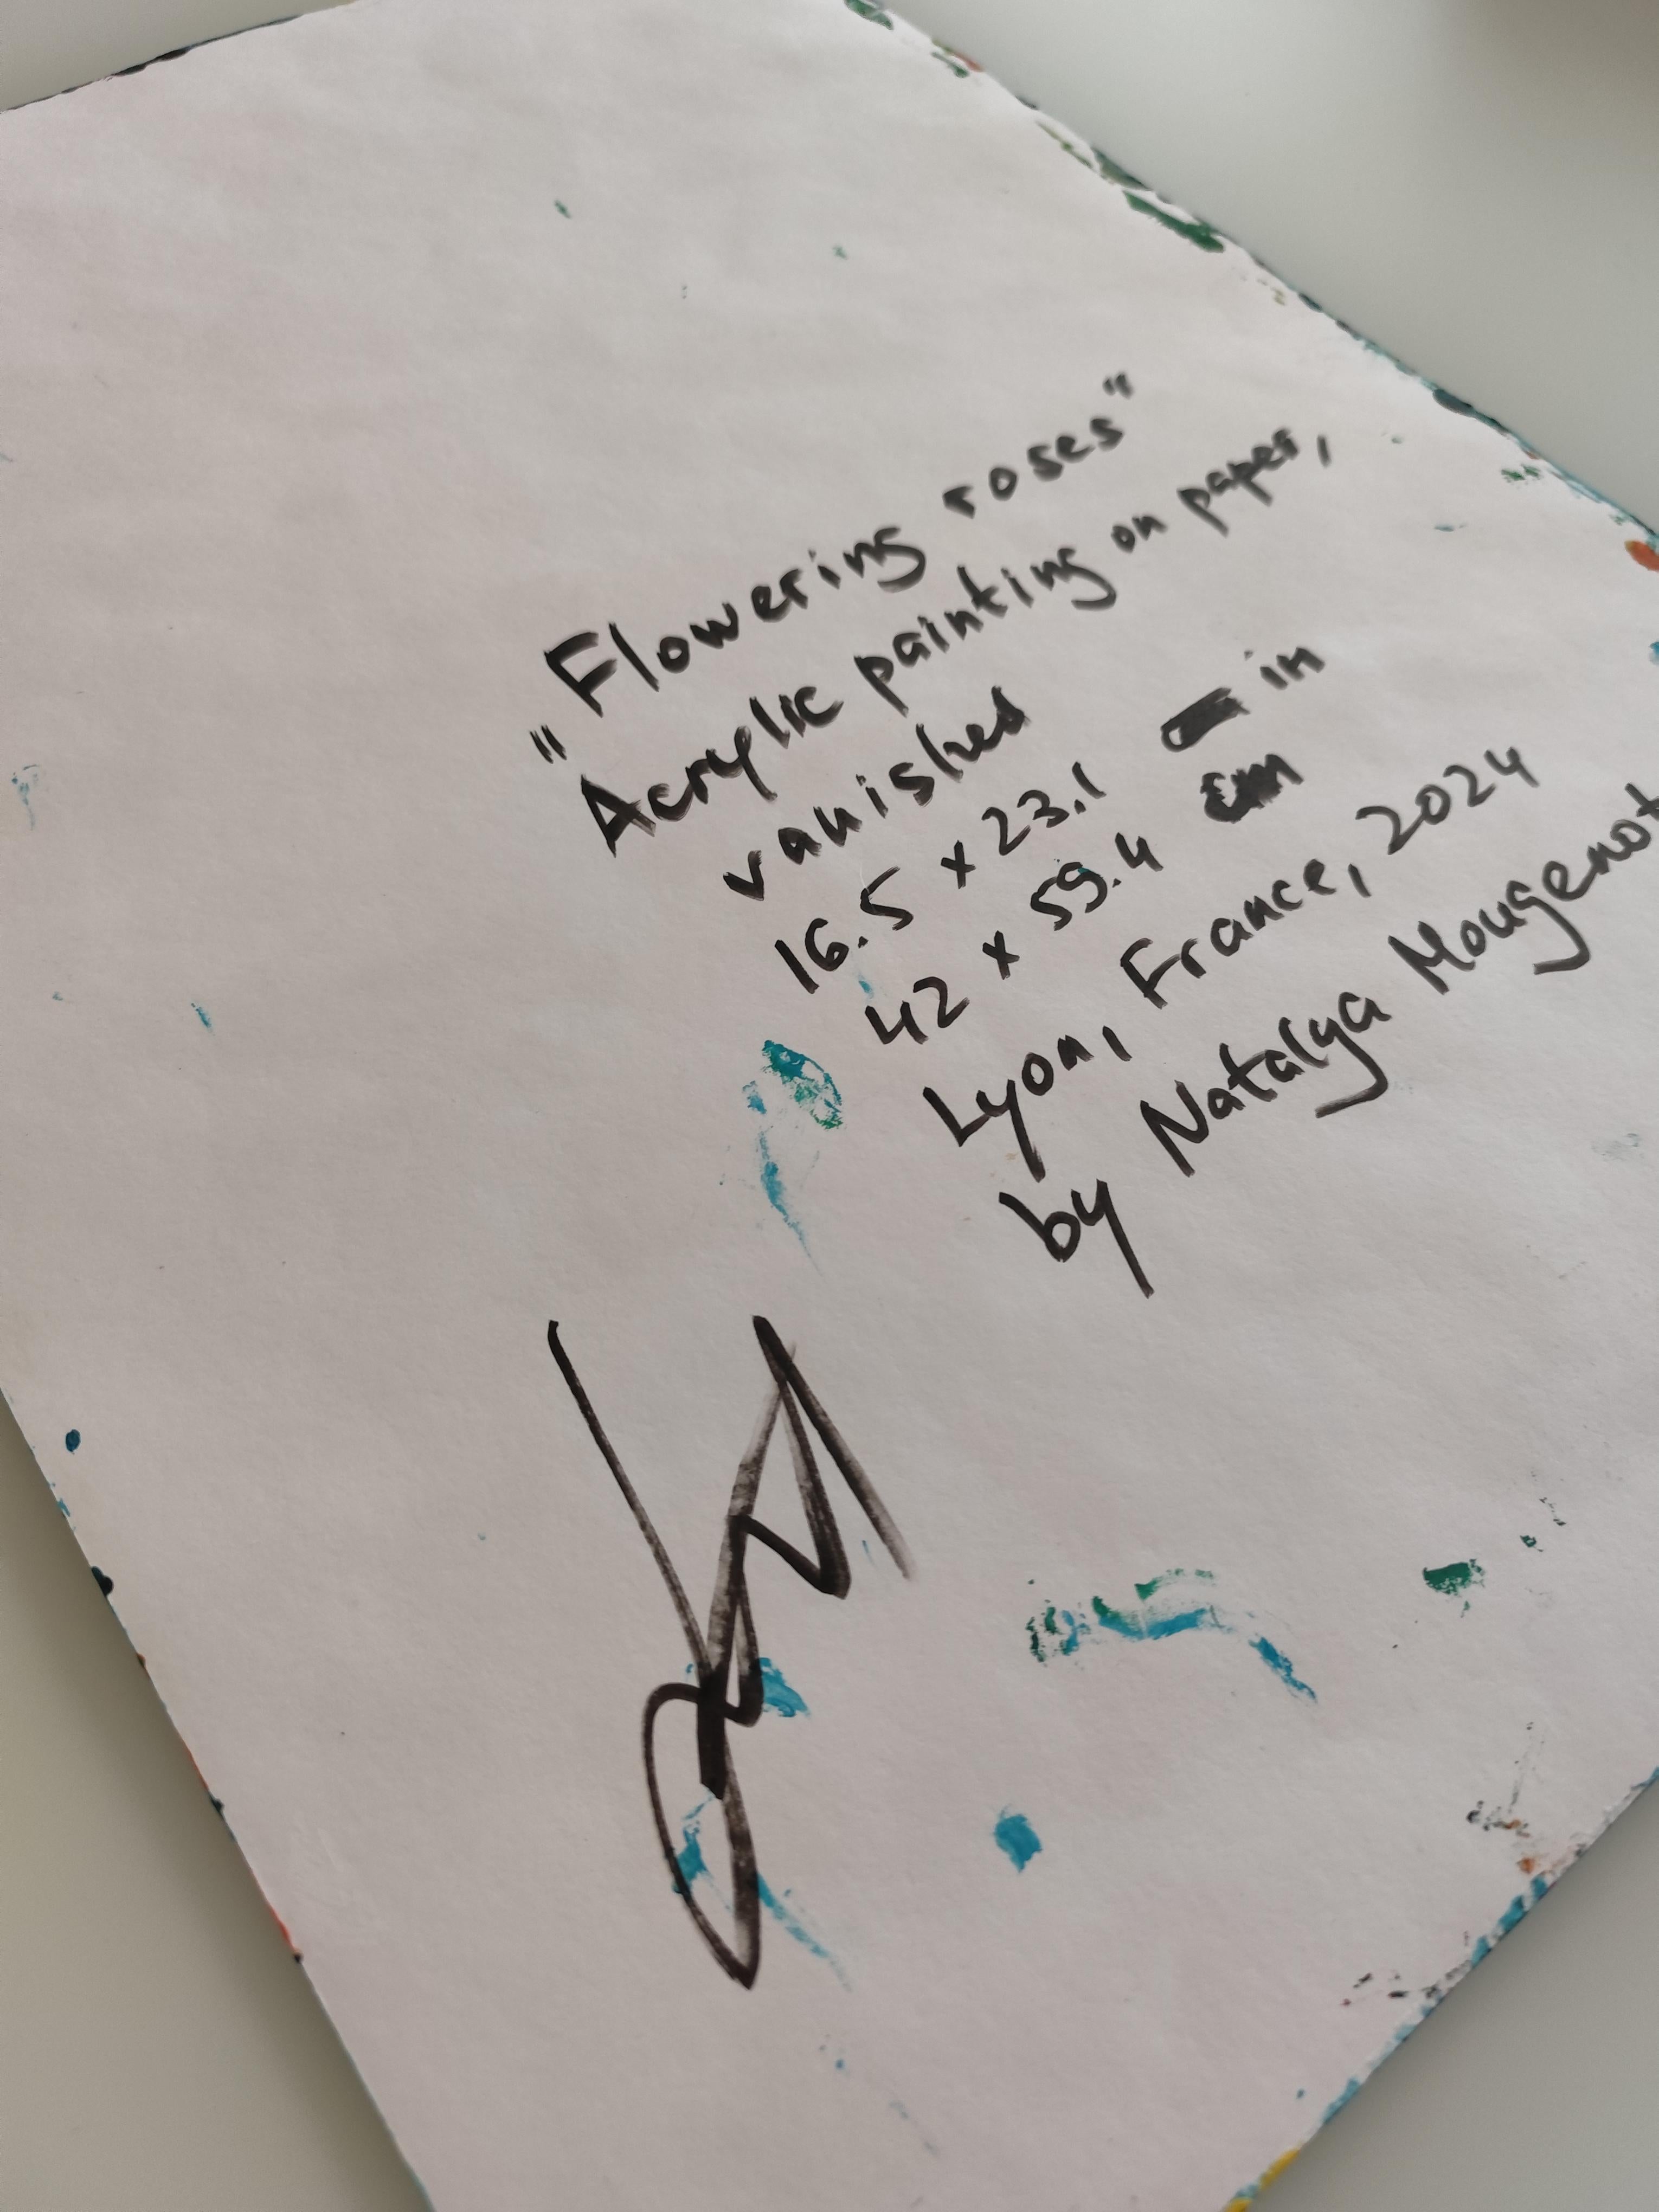 "Flowering roses"
Acrylic painting on paper,
vanished
16.5 x 23.1 in
42 x 59.4 cm
Lyon, France, 2024
by Natalya Mougenot